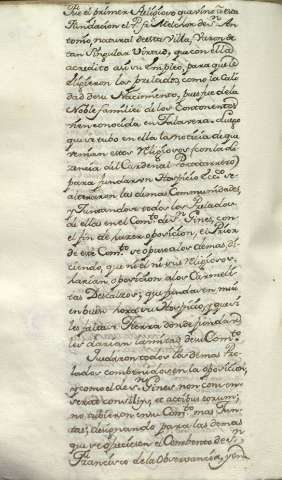 Fue el primer Religioso que vino a esta
fundacion el Pe. fr. Melchor de Sn. An-
tonio, natural desta Villa, Varon de
tan singular Virtud, que con ella
acreditò asi su empleo, para que le
eligieron los prelados, como la cali-
dad de su Nacimiento, pues fue de la
Noble familia de los Contoneros
bien conocida en Talavera. Luego
que se tubo en ella la noticia de que
venian estos Religiosos (con la li-
cencia del Cardenal Portocarrero)
para fundar un Hospicio
alteraron las demas Communidades,
y juntandose todos los Prelados
de ellas en el Combto. de Sn. Gines, con
el fin de hazer oposicion, el Prior
de este Combto. se opuso a los demas, di-
ciendo, que ni èl ni sus Religiosos,
harian oposicion a los Carmeli-
tas Descalzos; que fundasen mui
en buen hora su Hospicio, y que si
les faltase tierra donde fundar
les darian la mitad de su Combto.
Quedaron todos los demas Pre-
lados combenidos en la oposicion,
y como el de Sn. Gines non conven-
serat consilijs, et actibus eorum,
no tubieron en su Combto. mas Jun-
tas, designando para las demas
que se ofreciesen el Combento de Sn.
Francisco de la Observancia, y en